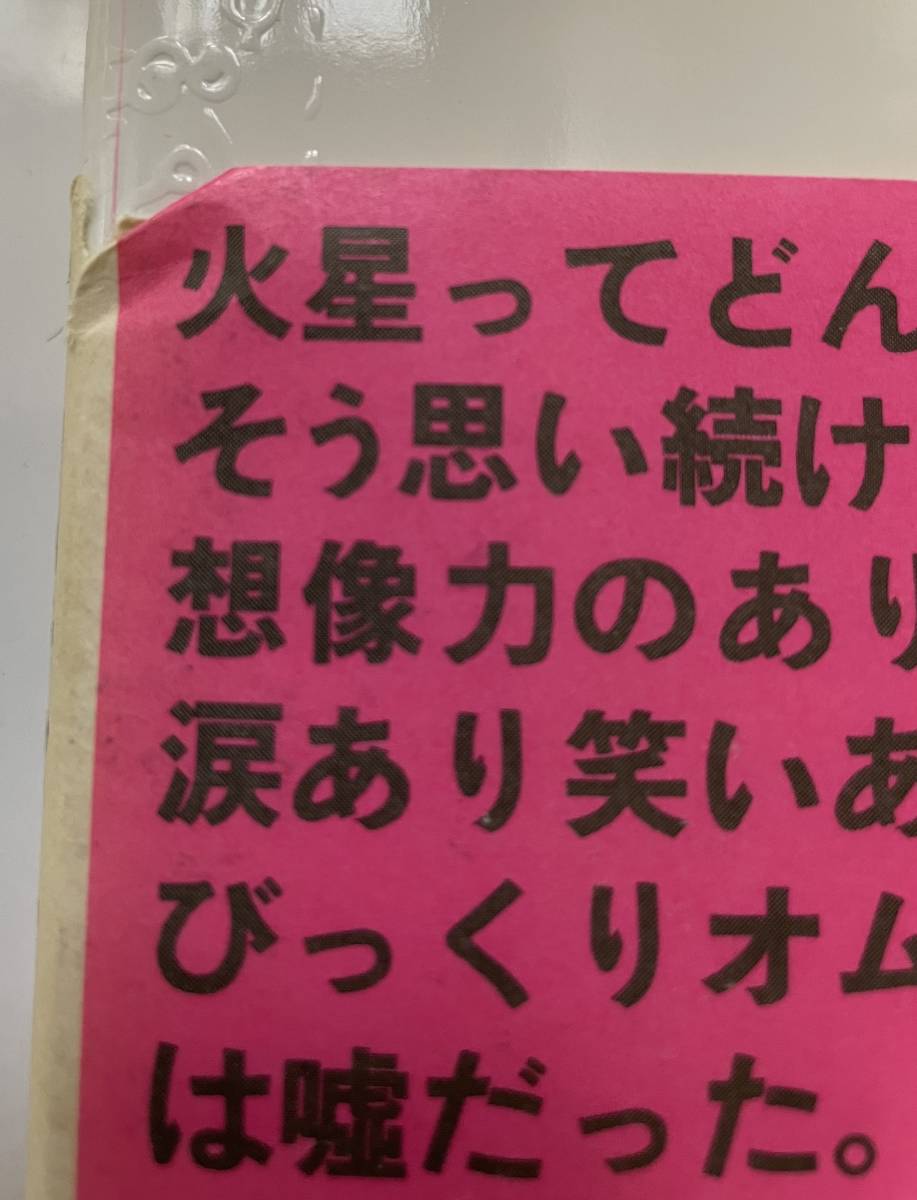 火星ってどん
そう思い続け
想像力のあり
涙あり笑いあ
びっくりオム
は嘘だった。